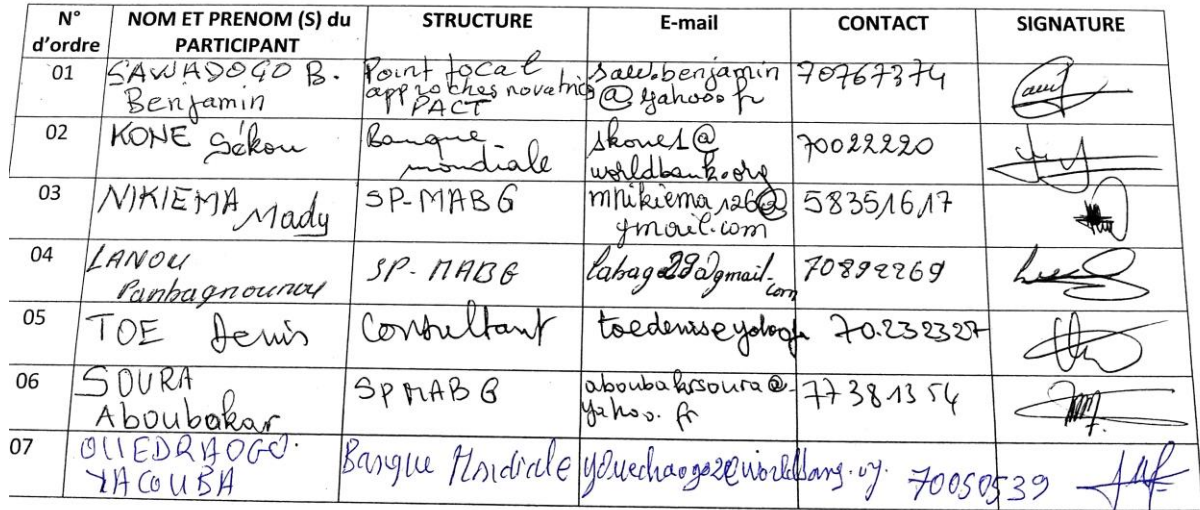 N° d'ordre NOM ET PRENOM (S) du PARTICIPANT STRUCTURE E-mail CONTACT SIGNATURE
01 SAWADOGO B. Benjamin Point focal approches novatrices PACT saw.benjamin@yahoo.fr 70767374
02 KONE Sékou Banque mondiale skone1@worldbank.org 70022220
03 NIKIEMA Mady SP-MABG mnikiema126@gmail.com 58351617
04 LANOU Panbagnounou SP-MABG labage29@gmail.com 70892269
05 TOE Denis Consultant 70.232327
06 SOURA Aboubakar SP MABG aboubakrsoura@yahoo.fr 77381354
07 OUEDRAOGO YACOUBA Banque Mondiale 70050539